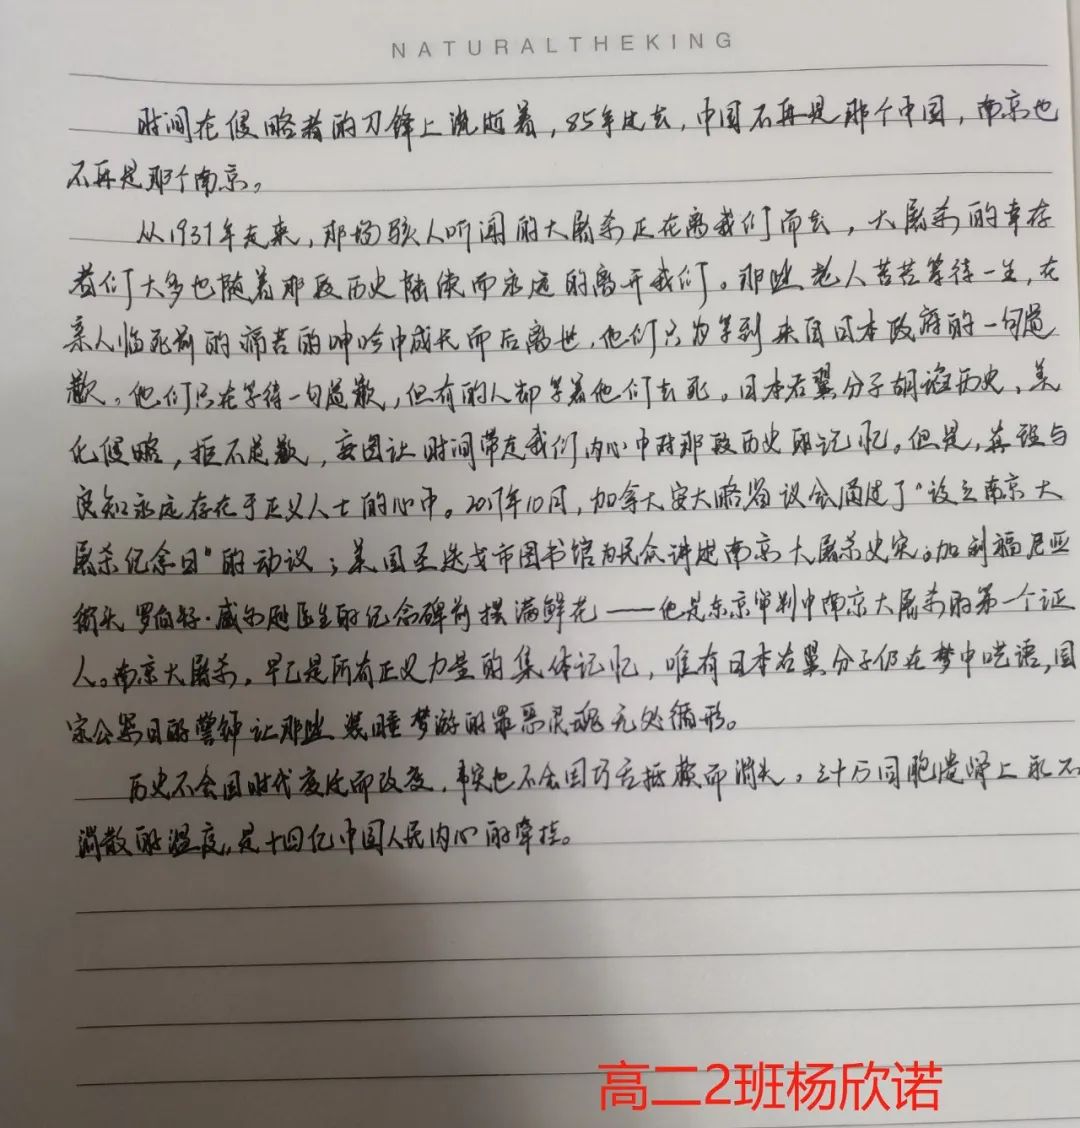 NATURALTHEKING
时间在侵略者的刀锋上流逝着，85年过去，中国不再是那个中国，南京也
不再是那个南京。
从1937年走来，那场骇人听闻的大屠杀正在离我们而去，大屠杀的幸存
者们大多也随着那段历史陆续而永远的离开我们。那些老人苦苦等待一生，在
亲人临死前的痛苦的呻吟中成长而后离世，他们只为等到来自日本政府的一句道
歉。他们只在等待一句道歉，但有的人却等着他们去死。日本右翼分子胡诌历史，美
化侵略，拒不道歉，妄图让时间带走我们内心中对那段历史的记忆。但是，真诚与
良知永远存在于正义人士的心中。2017年10月，加拿大安大略省议会通过了“设立南京大
屠杀纪念日”的动议；美国圣迭戈市图书馆为民众讲述南京大屠杀史实；加利福尼亚
街头罗伯特·威尔逊医生的纪念碑前摆满鲜花——他是东京审判中南京大屠杀的第一个证
人。南京大屠杀，早已是所有正义力量的集体记忆，唯有日本右翼分子仍在梦中呓语，国
家公祭日的警钟让那些装睡梦游的罪恶灵魂无处循形。
历史不会因时代变迁而改变，事实也不会因巧舌抵赖而消失，三十万同胞脊上永不
消散的温度，是十四亿中国人民内心的牵挂。
高二2班杨欣诺